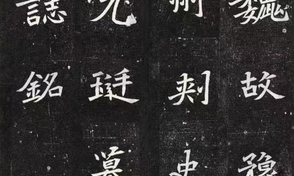 魏故豫
州刾史
元珽墓
誌銘